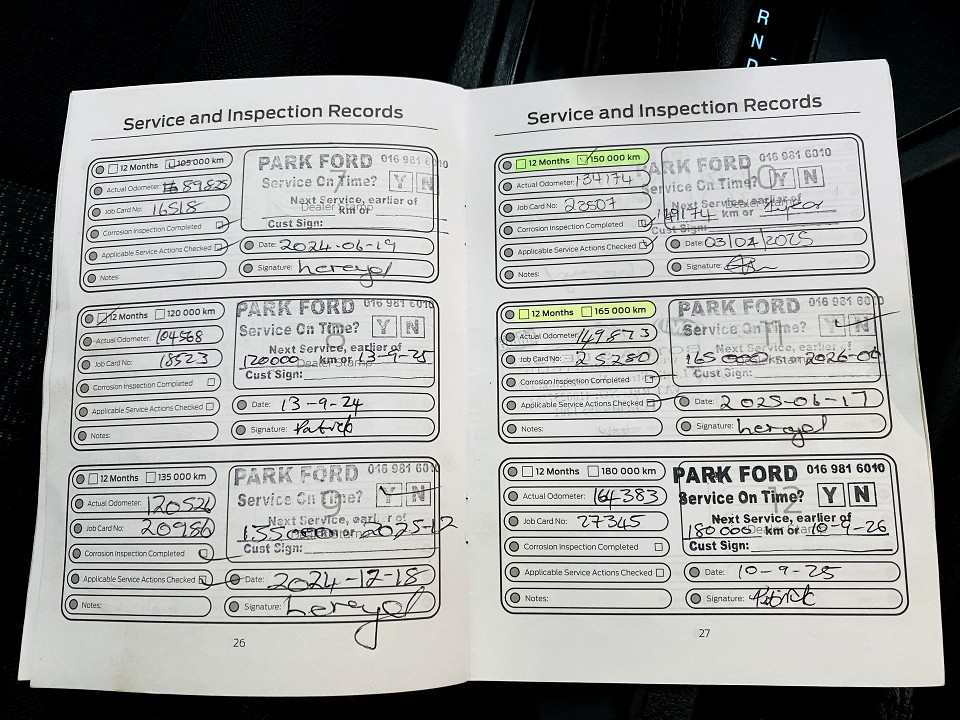 R
N
D
Service and Inspection Records
12 Months 105 000 km
Actual Odometer: 89825
Job Card No: 16518
Corrosion Inspection Completed
Applicable Service Actions Checked
Notes:
PARK FORD 016 981 6010
7
Service On Time? Y N
Next Service, earlier of
km or
Cust Sign:
Date: 2024-06-19
Signature:
12 Months 120 000 km
Actual Odometer: 104568
Job Card No: 18523
Corrosion Inspection Completed
Applicable Service Actions Checked
Notes:
PARK FORD 016 981 6010
8
Service On Time? Y N
Next Service, earlier of
Dealer Stamp
120000 km or 13-9-25
Cust Sign:
Date: 13-9-24
Signature: Patrick
12 Months 135 000 km
Actual Odometer: 120526
Job Card No: 20986
Corrosion Inspection Completed
Applicable Service Actions Checked
Notes:
PARK FORD 016 981 6010
9
Service On Time? Y N
Next Service, earlier of
km or 2025-12
Cust Sign:
Date: 2024-12-18
Signature:
26
Service and Inspection Records
12 Months 150 000 km
Actual Odometer: 134174
Job Card No: 22507
Corrosion Inspection Completed
Applicable Service Actions Checked
Notes:
PARK FORD 016 981 6010
Service On Time? Y N
Next Service, earlier of
Dealer Stamp
149174 km or 1year
Cust Sign:
Date: 03/04/2025
Signature:
12 Months 165 000 km
Actual Odometer: 149873
Job Card No: 25280
Corrosion Inspection Completed
Applicable Service Actions Checked
Notes:
PARK FORD 016 981 6010
Service On Time? Y N
Next Service, earlier of
165000 km or 2026-06
Cust Sign:
Date: 2025-06-17
Signature:
12 Months 180 000 km
Actual Odometer: 164383
Job Card No: 27345
Corrosion Inspection Completed
Applicable Service Actions Checked
Notes:
PARK FORD 016 981 6010
12
Service On Time? Y N
Next Service, earlier of
Dealer Stamp
180000 km or 10-9-26
Cust Sign:
Date: 10-9-25
Signature: Patrick
27